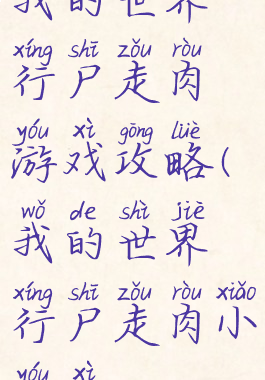 我的世界
xíng shī zǒu ròu
行尸走肉
yóu xì gōng lüè
游戏攻略(
wǒ de shì jiè
我的世界
xíng shī zǒu ròu xiǎo
行尸走肉小
yóu xì